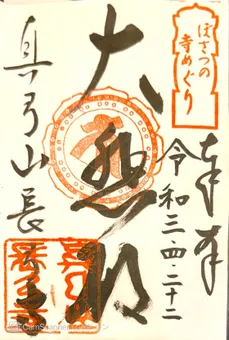 ぼさつの
寺めぐり
奉拝
令和三・四・二十二
大悲殿
真弓山長弓寺
CamScanner